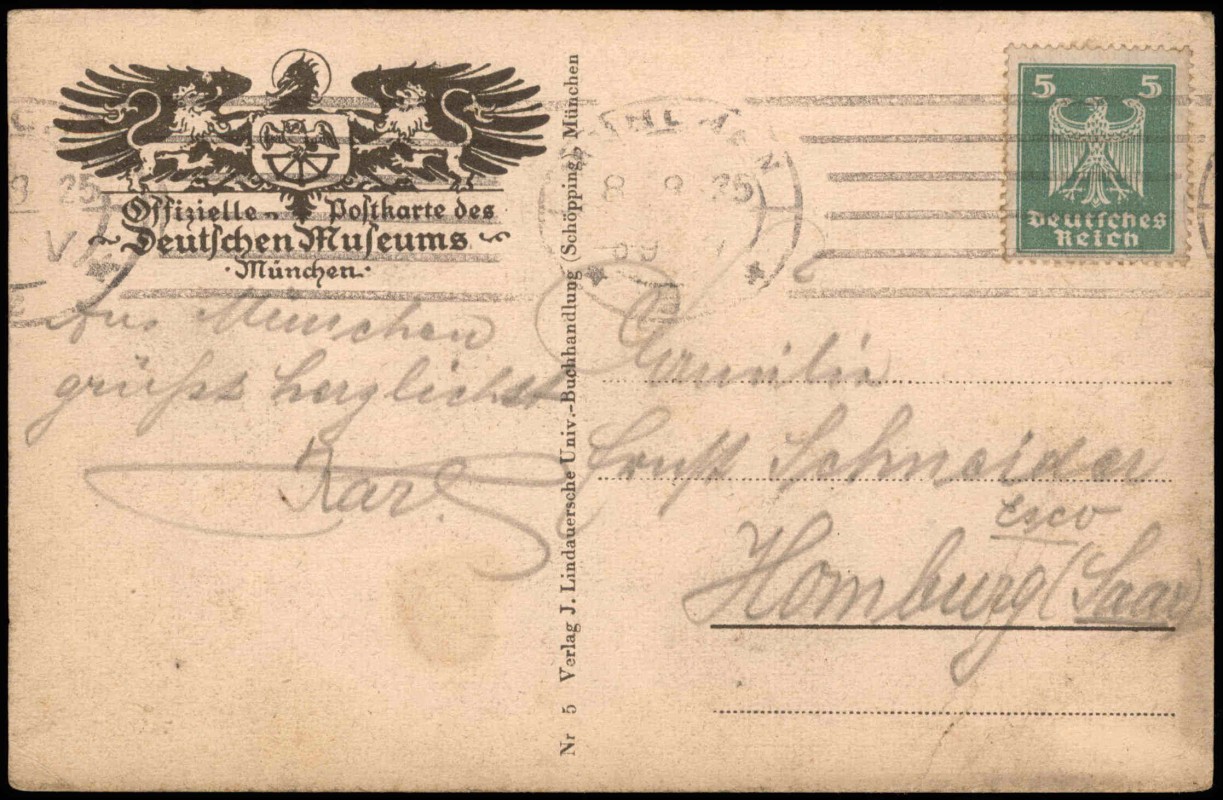 Offizielle Postkarte des
Deutschen Museums
München
Aus München
grüßt herzlichst
Karl
Nr 5 Verlag J. Lindauersche Univ.-Buchhandlung (Schöpping), München
8 9 25
8 25
V
5 5
Deutsches
Reich
Familie
Ernst Schneider
Homburg (Saar)